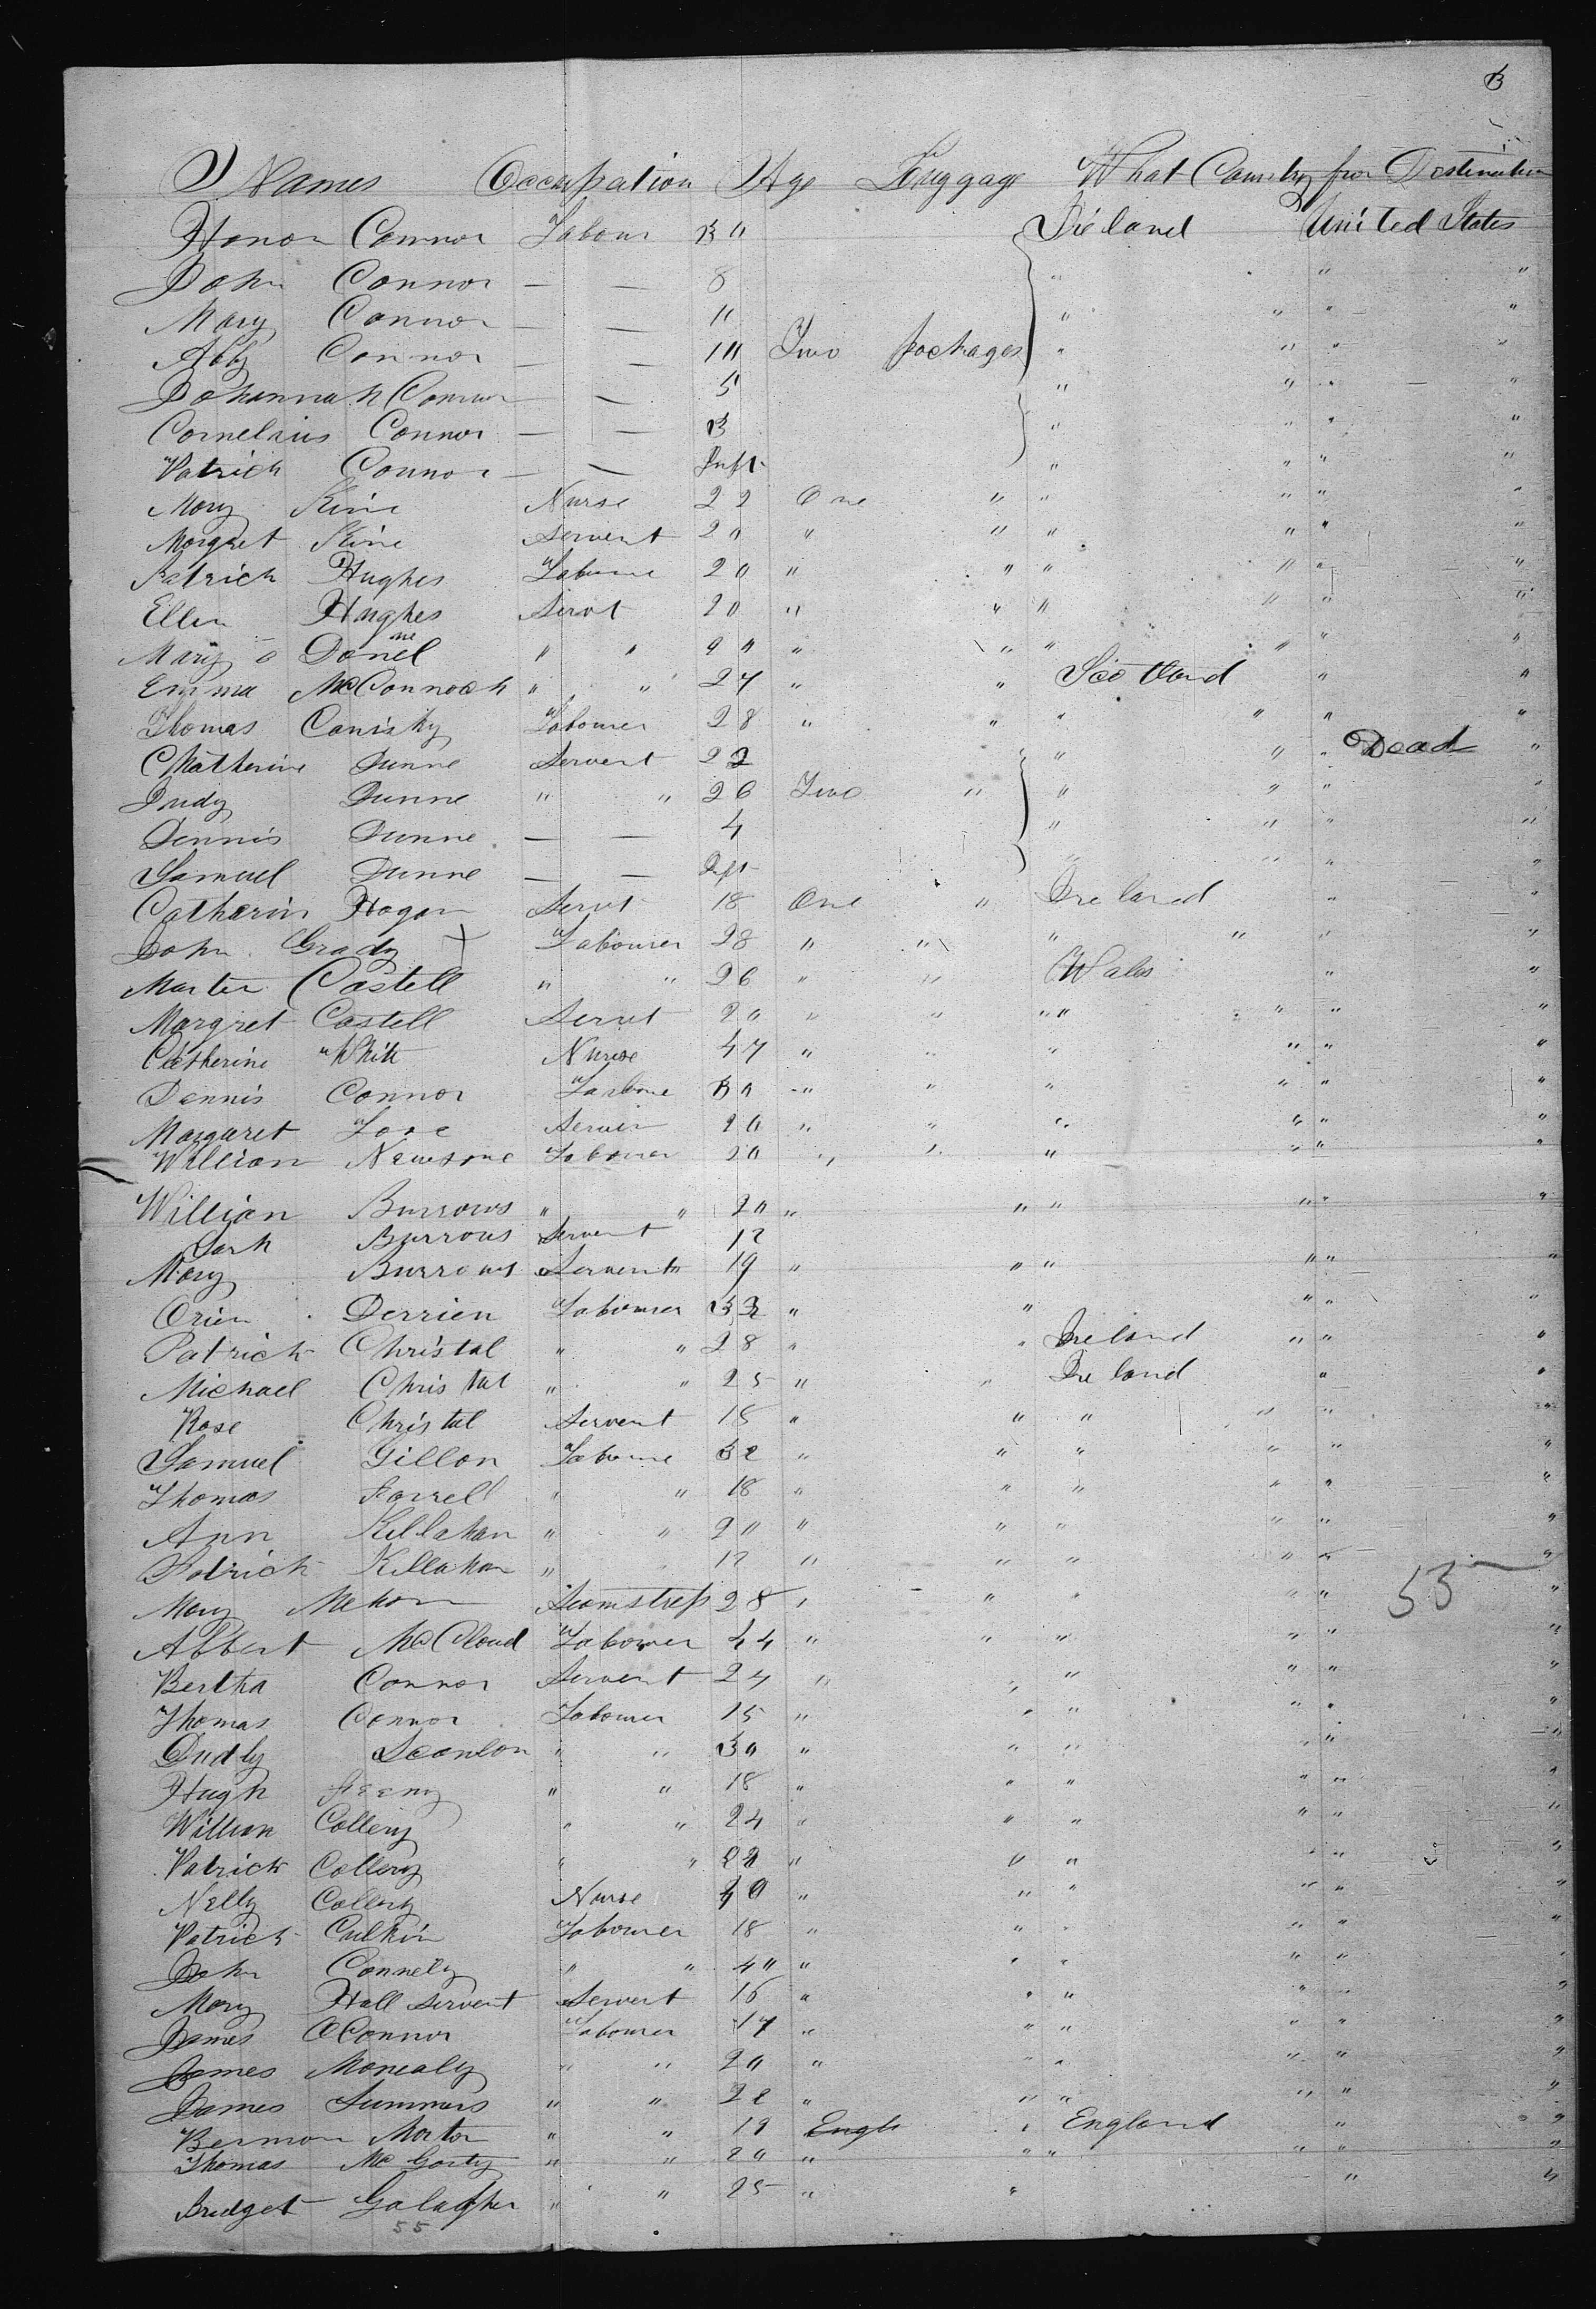 B
Names Occupation Age Luggage What Country from Destination
Honor Connor Labour 30 Ireland United States
John Connor — — 8 " " "
Mary Connor — — 11 " " " "
Abby Connor — — 10 Two packages " " " "
Johannah Connor — 5 " " " "
Cornelius Connor — — 3 " " " "
Patrick Connor — — Inft " " " "
Mary Kine Nurse 22 One " " " " "
Margret Kine Servent 20 " " " " " "
Patrick Hughes Laboure 20 " " " " " "
Ellen Hughes Servt 20 " " " " " "
Mary o Donel " " 20 " " " " " "
Emma McConnoch " " 27 " " Scotland " "
Thomas Canisky Labourer 28 " " " " " "
Chatherine Dunne Servent 22 " " " Dead "
Judy Dunne " " 26 Two " " " "
Dennis Dunne — — 4 " " " "
Samuel Dunne — — Inft " " " "
Catherin Hogan Servt 18 One " Ireland " "
John Grady Labourer 28 " " " " " "
Marten Castell " " 26 " " Wales " "
Margret Castell Servt 20 " " " " " "
Catherine White Nurse 47 " " " " " "
Dennis Connor Laboure 30 " " " " " "
Margaret Serven 20 " " " " " "
William Newsome Labourer 20 " " " " " "
William Burrows " " 20 " " " " " "
Sarh Burrows Servent 12
Mary Burrows Servent 19 " " " " " "
Orien Derrien Labourer 32 " " " " "
Patrick Christal " " 28 " " Ireland " " "
Michael Christal " " 25 " " Ireland " "
Rose Christal Servent 18 " " " " " "
Samuel Gillon Laboure 32 " " " " " "
Thomas Farrell " " 18 " " " " " "
Ann Killahan " " 20 " " " " " "
Patrick Killahan " 12 " " " " " "
Mary Mehon Seamstress 28 " " " " " " 53
Abbert McCloud Labourer 44 " " " " " "
Bertha Connor Servent 24 " " " " " "
Thomas Connor Labourer 15 " " " " " "
Dudly Scanlon " " 30 " " " " " "
Hugh Feeny " " 18 " " " " " "
William Collery " " 24 " " " " " "
Patrick Collery " " 22 " " " " "
Nelly Collery Nurse 40 " " " " " "
Patrick Culkin Labourer 18 " " " " " "
John Connely " " 40 " " " " " "
Mary Hall servent Servent 16 " " " " " "
James OConnor Labourer 17 " " " " " "
James Monealy " " 20 " " " " " "
James Summers " " 22 " " " " " "
Morton " " 19 Engla " England " "
Thomas Mc Garty " " 20 " " " " " "
Bridget Galagher " " 25 " " " "
55